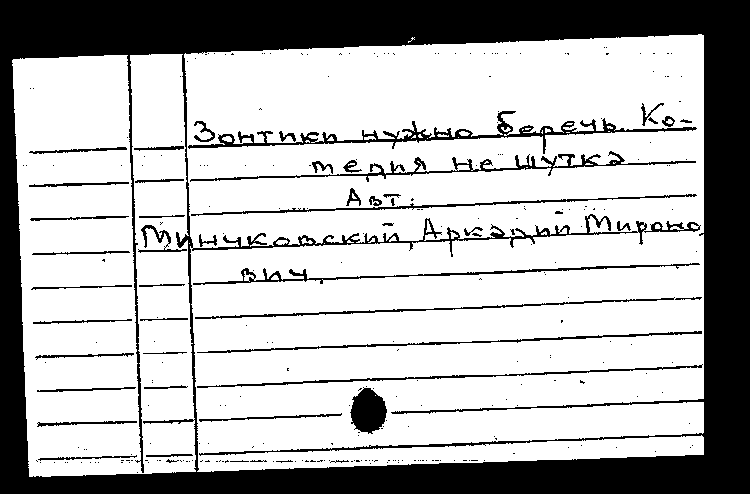 Зонтики нужно беречь. Ко-
медия не шутка
Авт.:
Минчковский, Аркадий Мироно
вич.